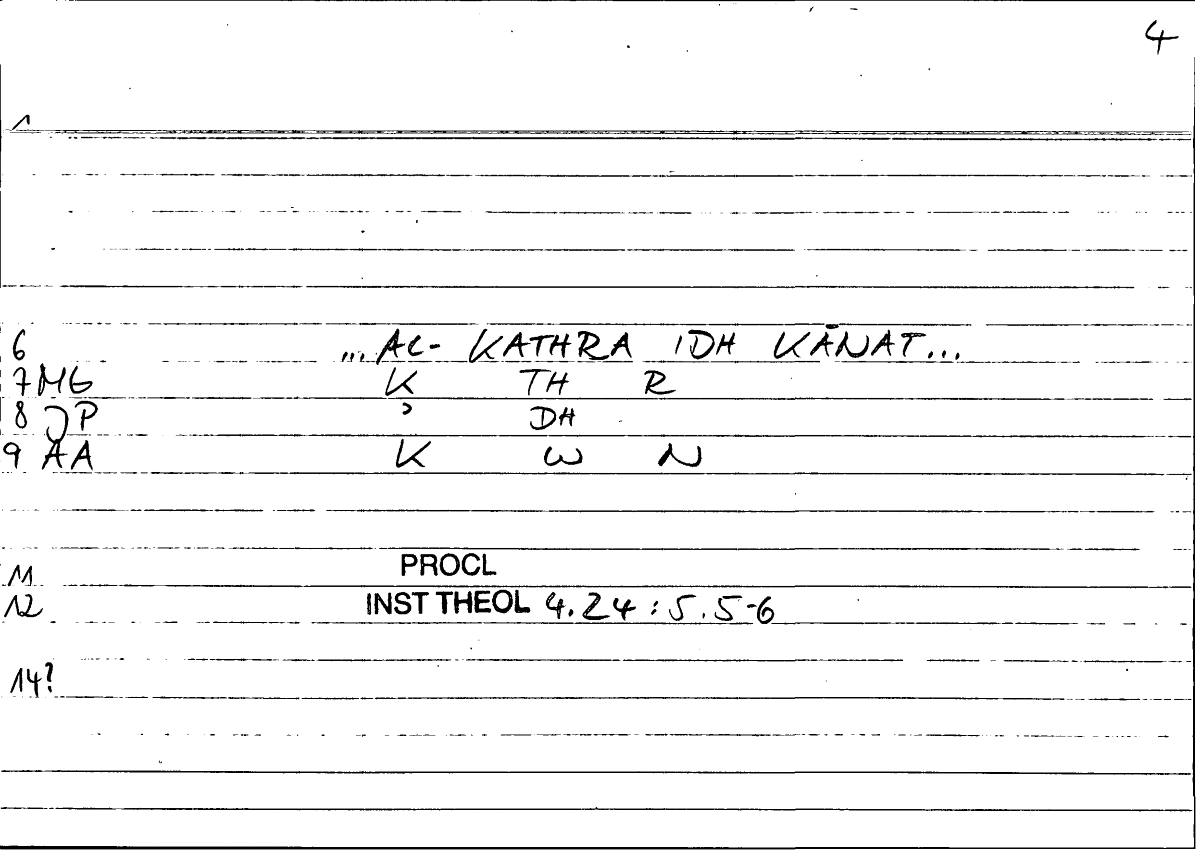 4
1
6 ... AL- KATHRA IDH KĀNAT...
7 MG K TH R
8 JP ʾ DH
9 AA K W N
11 PROCL
12 INST THEOL 4.24 : 5.5-6
14?